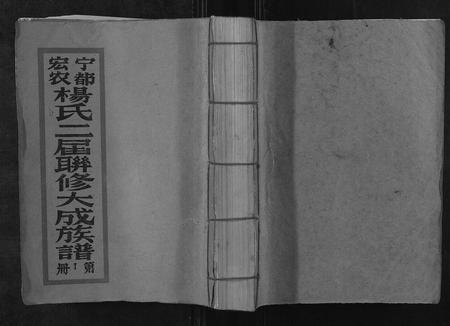 宁都
宏农
楊氏二届聯修大成族譜
第1册